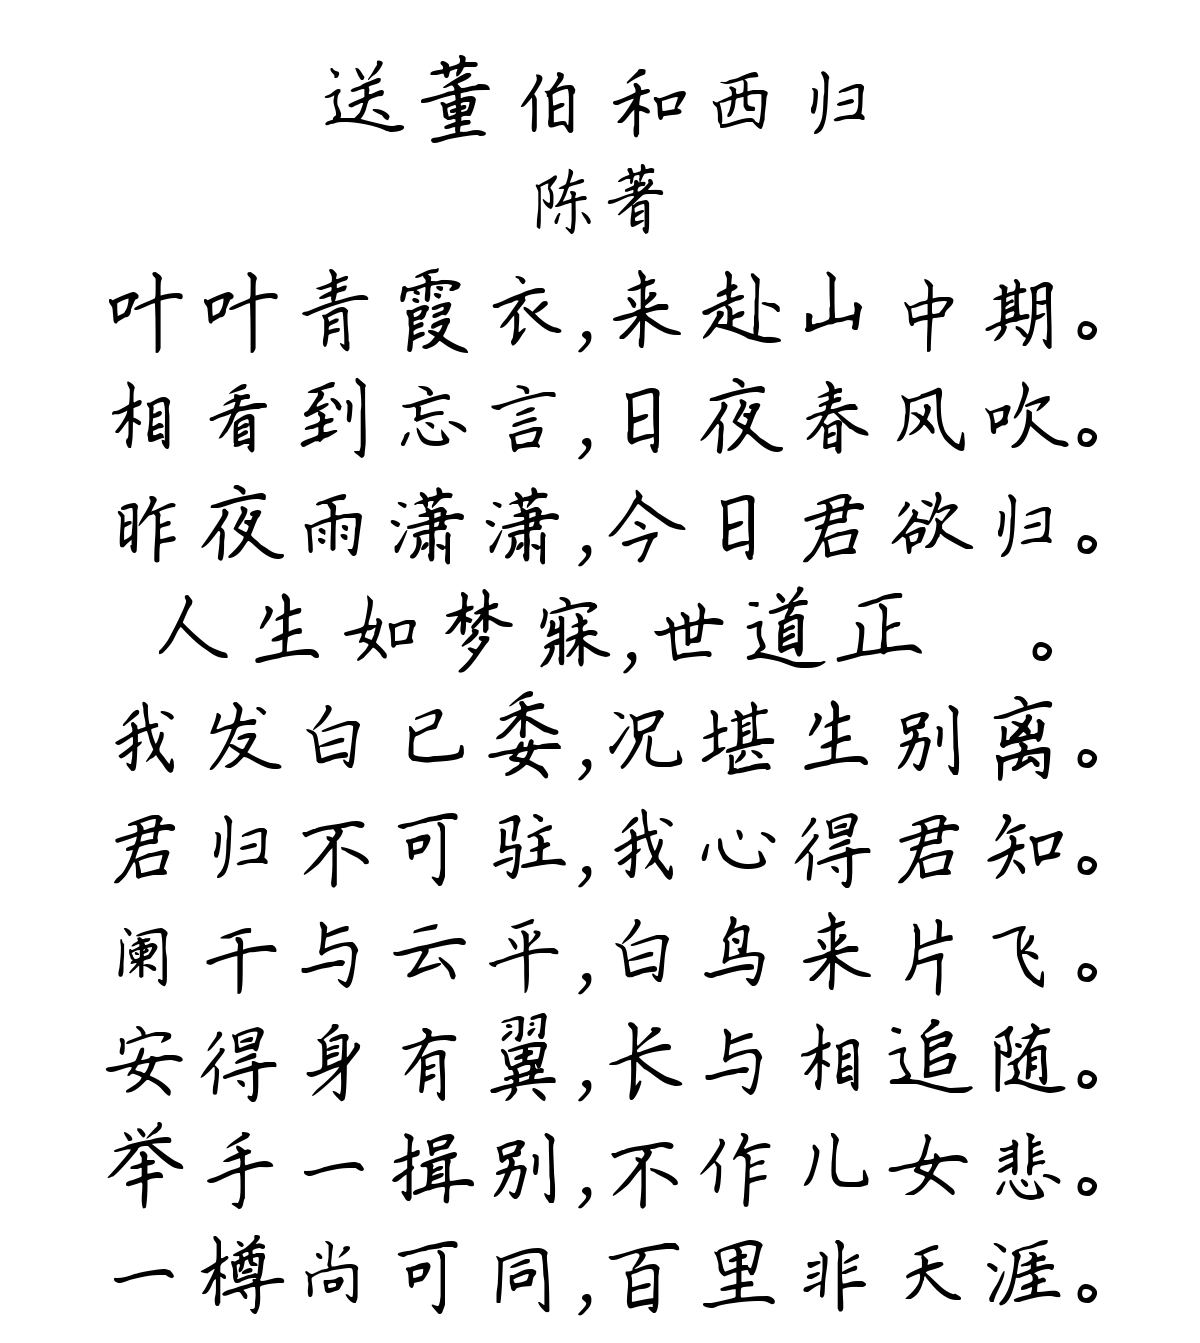 送董伯和西归
陈著
叶叶青霞衣,来赴山中期。
相看到忘言,日夜春风吹。
昨夜雨潇潇,今日君欲归。
人生如梦寐,世道正 。
我发白已委,况堪生别离。
君归不可驻,我心得君知。
阑干与云平,白鸟来片飞。
安得身有翼,长与相追随。
举手一揖别,不作儿女悲。
一樽尚可同,百里非天涯。